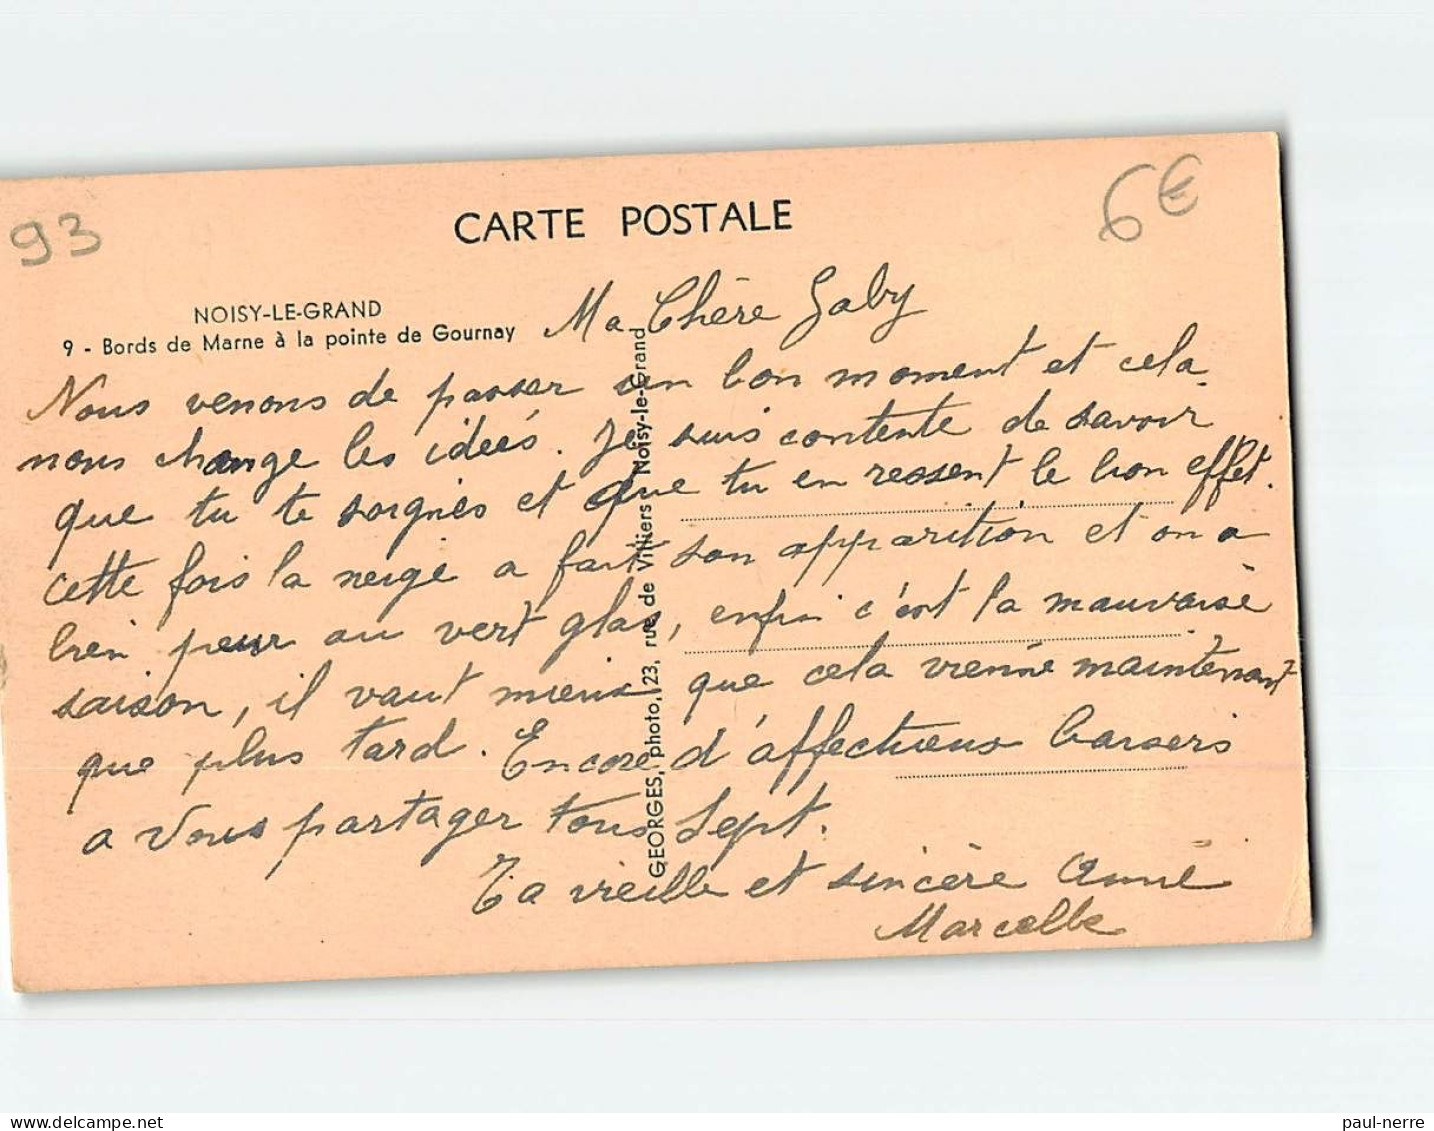 93
6€
CARTE POSTALE
NOISY-LE-GRAND
9 - Bords de Marne à la pointe de Gournay
Ma Chère Gaby
Nous venons de passer un bon moment et cela
nous change les ideés. Je suis contente de savoir
que tu te soignes et que tu en ressent le bon effet.
cette fois la neige a fait son apparition et on a
bien peur au vert glas, enfin c'est la mauvaise
saison, il vaut mieux que cela vienne maintenant
que plus tard. Encore d'affectueux baisers
a vous partager tous sept.
Ta vieille et sincère amie
Marcelle
GEORGES, photo, 23, rue de Villiers Noisy-le-Grand
paul-nerre